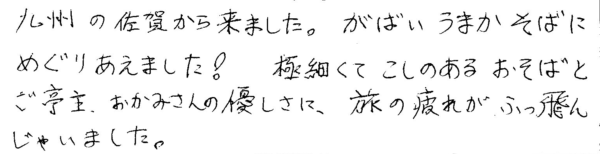 九州の佐賀から来ました。がばいうまかそばに
めぐりあえました! 極細くてこしのあるおそばと
ご亭主、おかみさんの優しさに、旅の疲れがふっ飛ん
じゃいました。